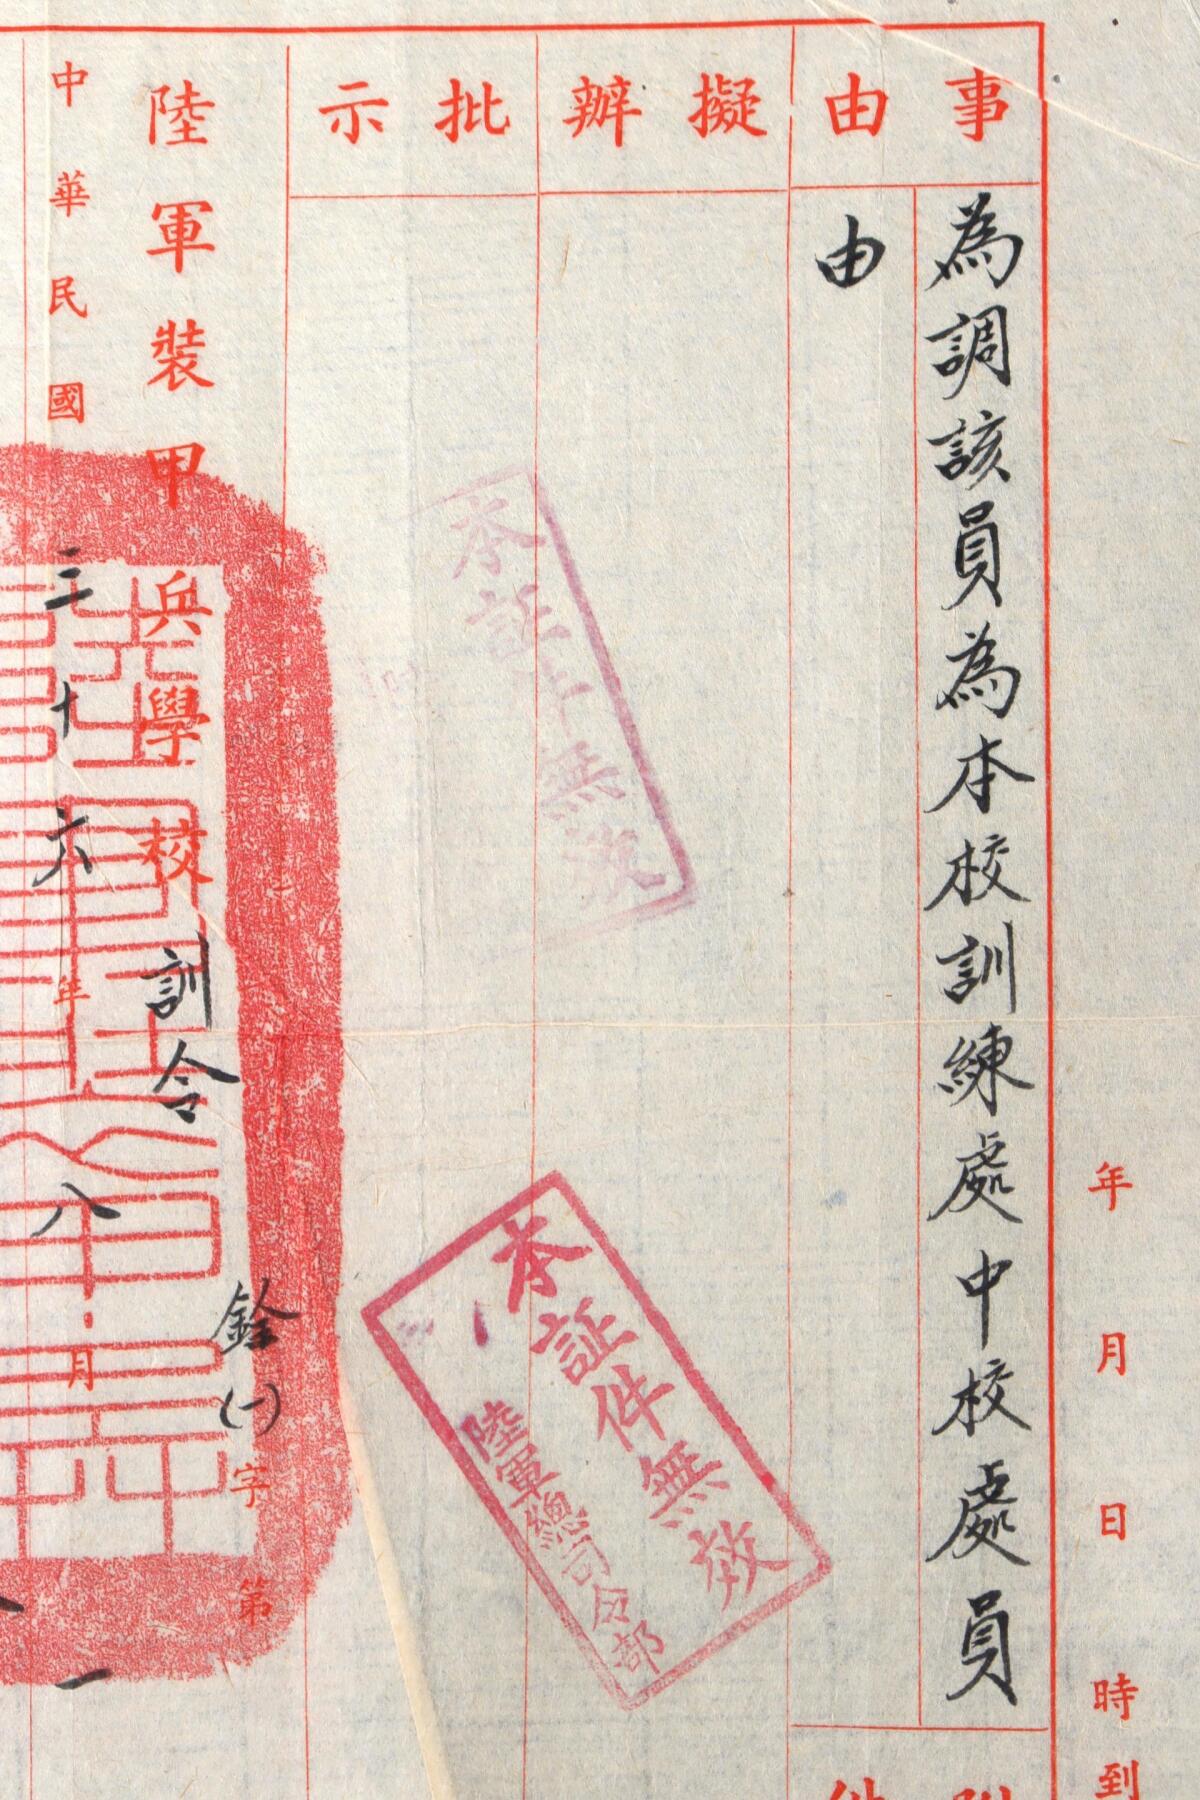 年 月 日 時到
事由
為調該員為本校訓練處中校處員
由
擬辦
批示
本証件無效
本証件無效
陸軍總司令部
陸軍裝甲兵學校訓令
銓(一)字第
中華民國三十六年八月
一